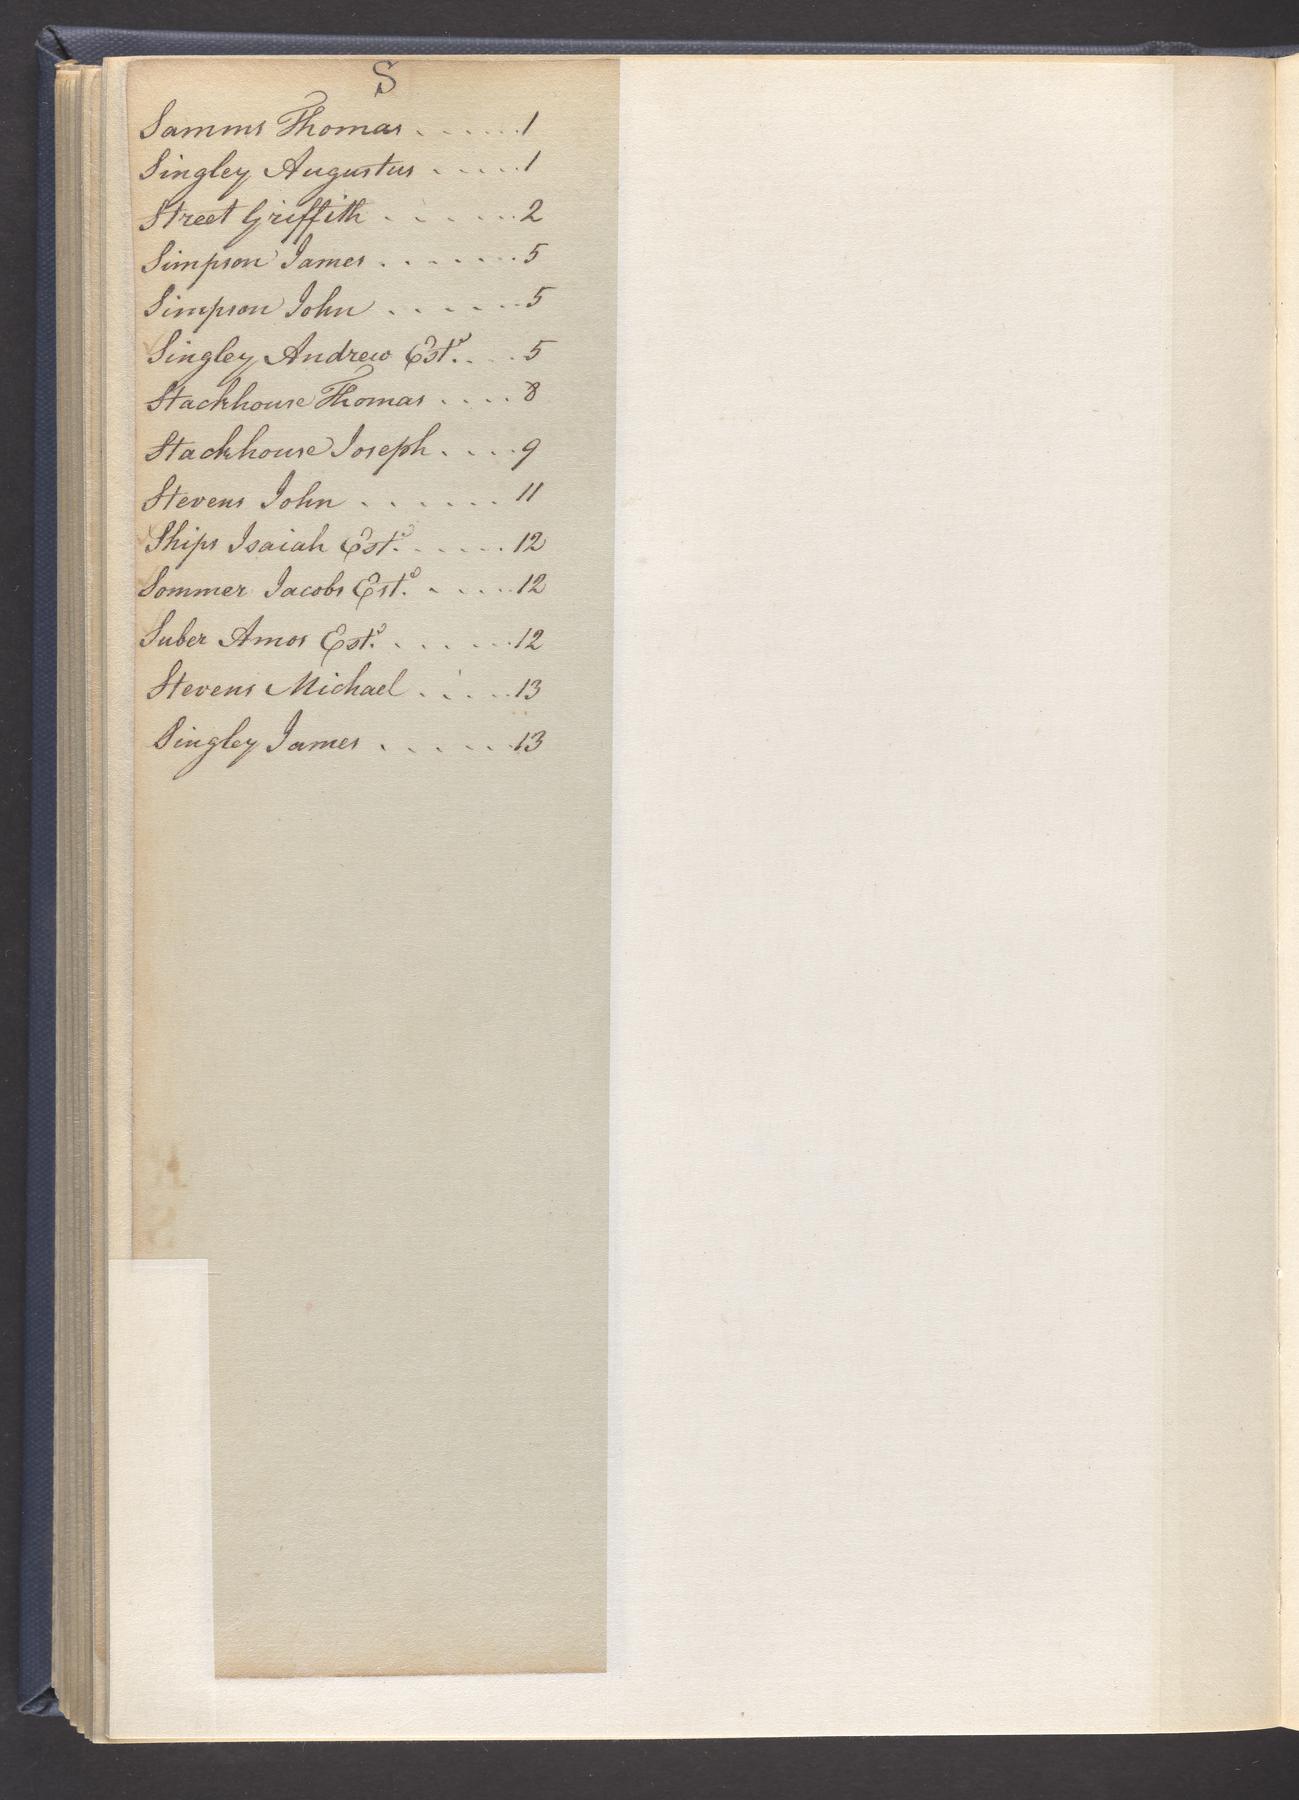 S
Samms Thomas . . . . . . 1
Singley Augustus . . . . . 1
Street Griffith . . . . . . 2
Simpson James . . . . . . . 5
Simpson John . . . . . . 5
Singley Andrew Est.e . . . 5
Stackhouse Thomas . . . . 8
Stackhouse Joseph . . . . 9
Stevens John . . . . . . 11
Ships Isaiah Est.e . . . . . . 12
Sommer Jacobs Est.e . . . . . 12
Suber Amos Est.e . . . . . . 12
Stevens Michael . . . . . 13
Singley James . . . . . . 13